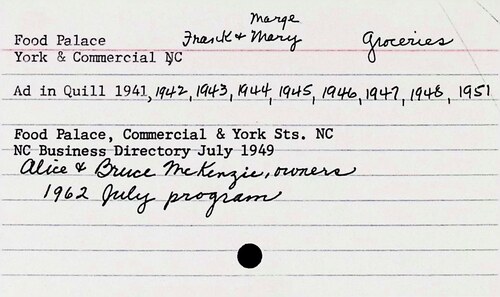 Marge
Food Palace Frank & Mary Groceries
York & Commercial NC
Ad in Quill 1941, 1942, 1943, 1944, 1945, 1946, 1947, 1948, 1951
Food Palace, Commercial & York Sts. NC
NC Business Directory July 1949
Alice & Bruce McKenzie, owners
1962 July program